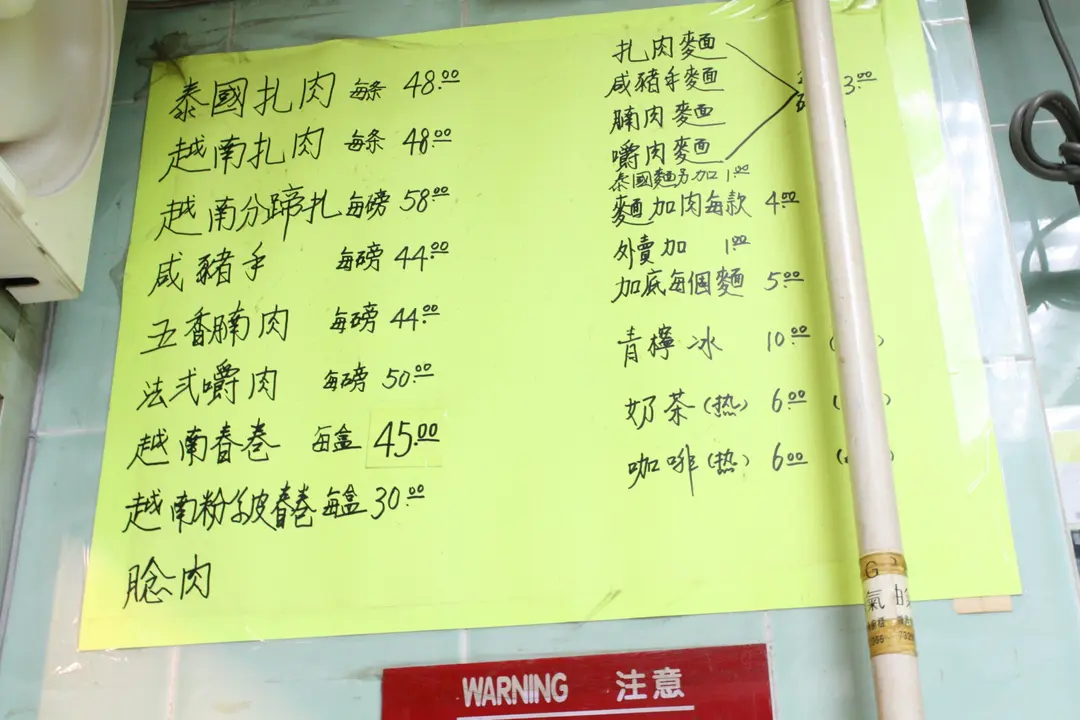 泰國扎肉 每条 48.00
越南扎肉 每条 48.00
越南分蹄扎 每磅 58.00
咸豬手 每磅 44.00
五香腩肉 每磅 44.00
法式嚼肉 每磅 50.00
越南春卷 每盒 45.00
越南粉皮春卷 每盒 30.00
腍肉
扎肉麵
咸豬手麵
腩肉麵
嚼肉麵
3.00
泰國麵另加 1.00
麵加肉每款 4.00
外賣加 1.00
加底每個麵 5.00
青檸冰 10.00
奶茶(热) 6.00
咖啡(热) 6.00
氣
WARNING 注意